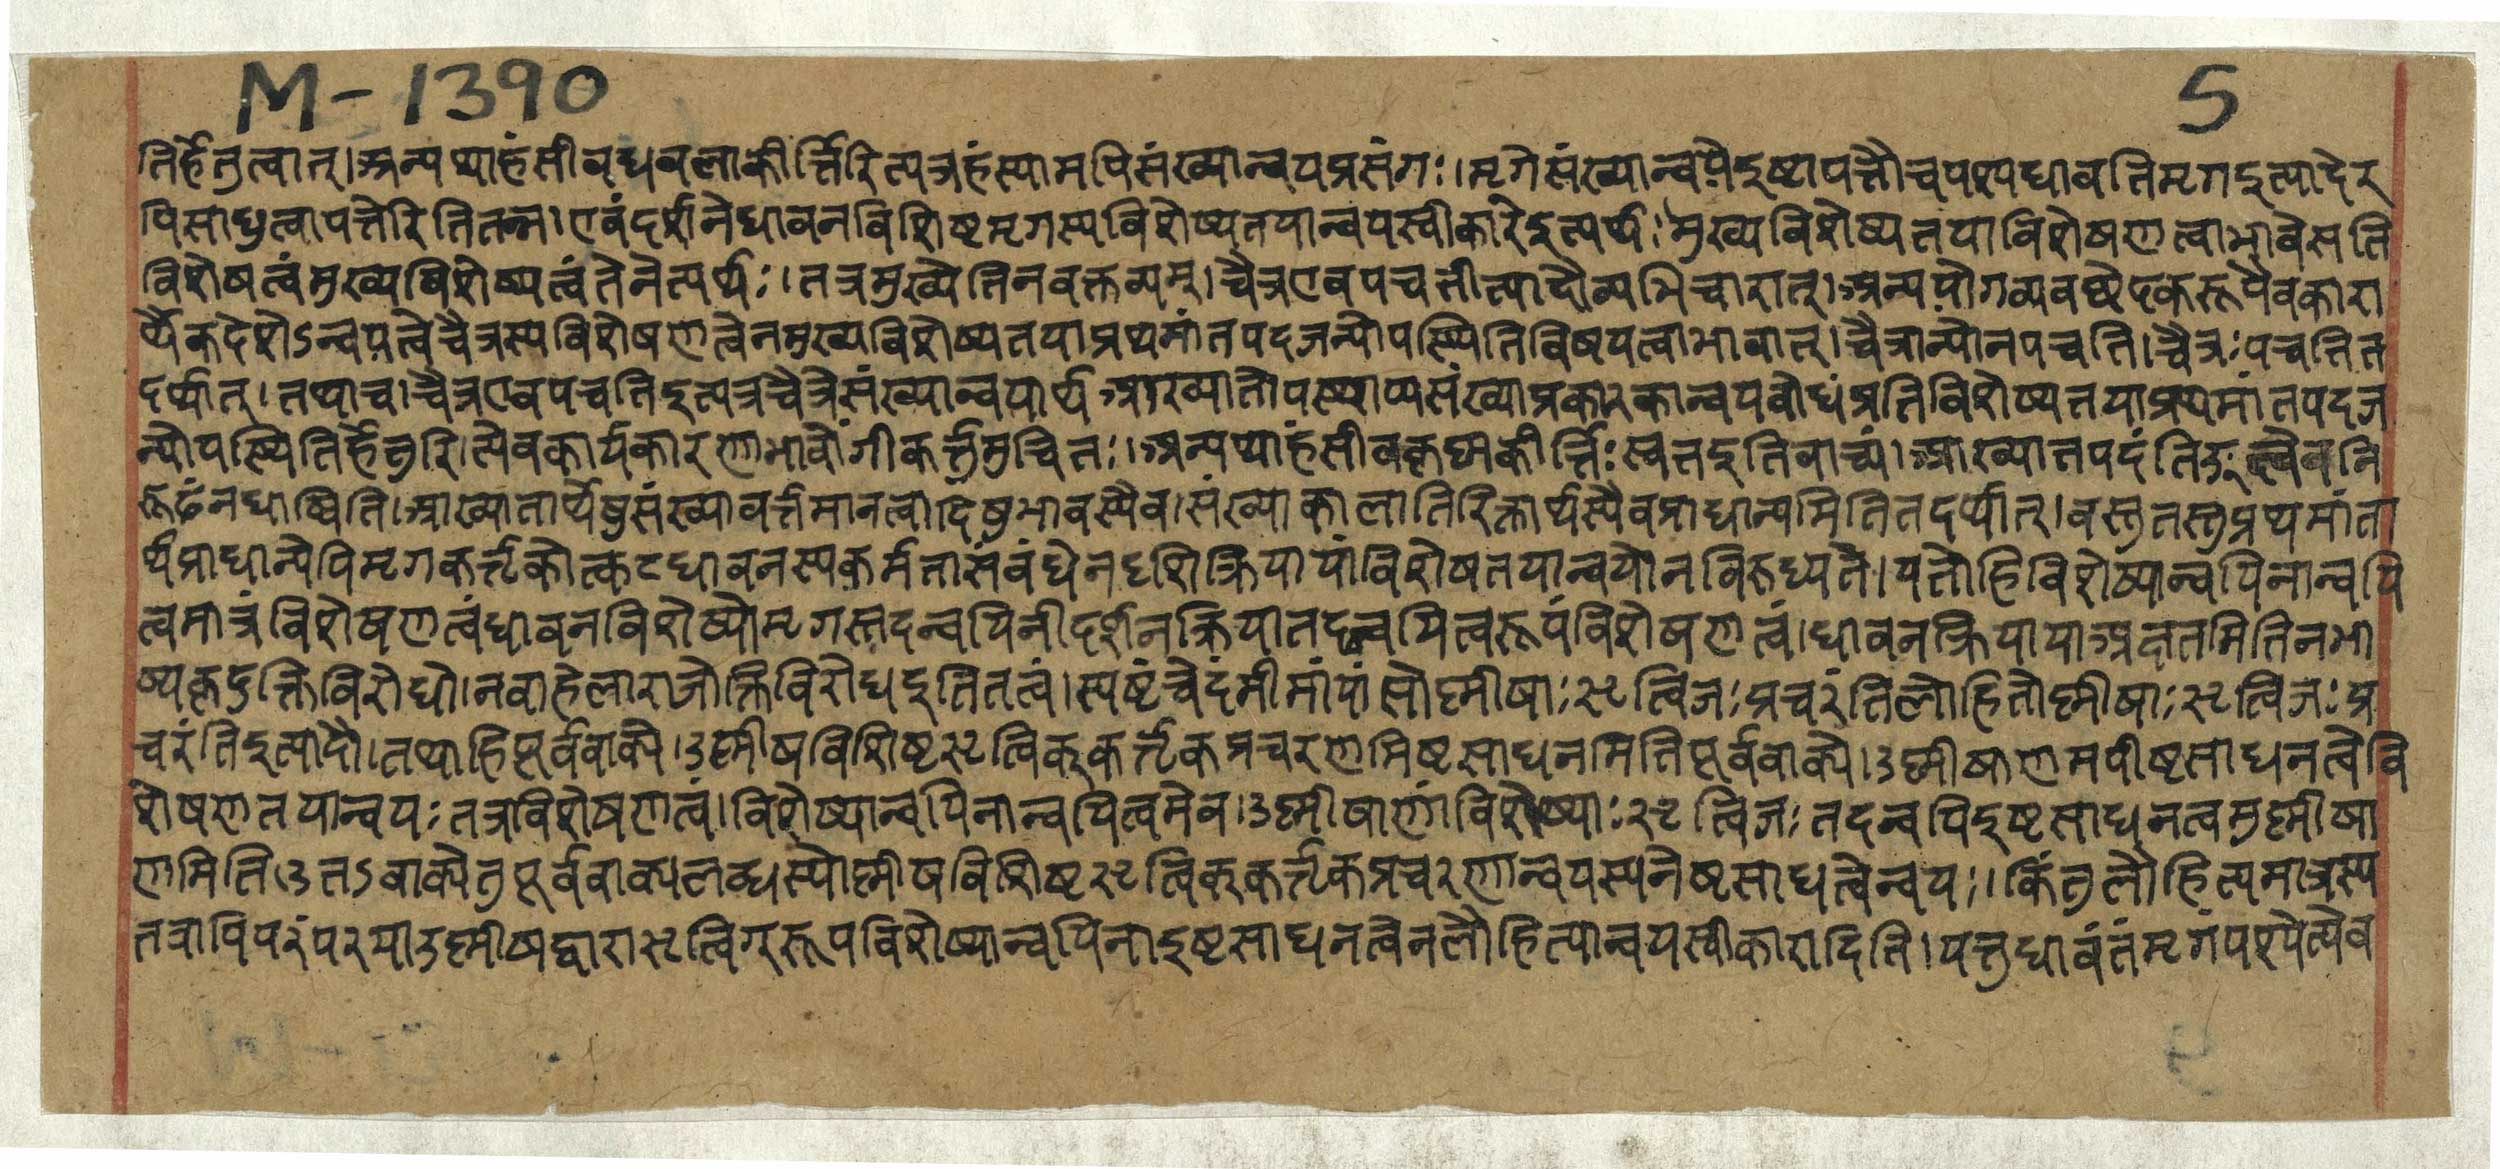 M-1390 5
तिर्हेतुत्वात्।अन्यथाहंसीवधवलाकीर्त्तिरित्यत्रहंस्यामपिसंख्यान्वयप्रसंगः।मृगेसंख्यान्वयेइष्टापत्तौचपश्यधावतिमृगइत्यादेर
पिसाधुत्वापत्तेरितितन्न।एवंदर्शनेधावनविशिष्टमृगस्यविशेष्यतयान्वयस्वीकारेइत्यर्थः।मुख्यविशेष्यतयाविशेषणत्वाभावेसति
विशेषत्वंमुख्यविशेष्यत्वंतेनेत्यर्थः।तत्रमुख्येतिनवक्तव्यम्।चैत्रएवपचतीत्यादौव्यभिचारात्।अन्ययोगव्यवछेदकरूपेवकारा
र्थैकदेशेऽन्वयत्वेचैत्रस्यविशेषणत्वेनमुख्यविशेष्यतयाप्रथमांतपदजन्योपस्थितिविषयत्वाभावात्।चैत्रान्योनपचति।चैत्रःपचतित
दर्थात्।तथाच।चैत्रएवपचतिइत्यत्रचैत्रेसंख्यान्वयार्थआख्यातोपस्थाप्यसंख्याप्रकारकान्वयबोधंप्रतिविशेष्यतयाप्रथमांतपदज
न्योपस्थितिर्हेतुरि।त्येवकार्यकारणभावोंगीकर्त्तुमुचितः।अन्यथाहंसीवकृष्णकीर्त्तिःस्वतइतिवाच्यं।आख्यातपदंतिङ्त्वेवनि
रूढंनधाष्विति।आख्यातार्थेषुसंख्यावर्त्तमानत्वादिषुभावस्यैव।संख्याकालातिरिक्तार्थस्यैवप्राधान्यमितितदर्थात्।वस्तुतस्तुप्रथमांता
र्थप्राधान्येपिमृगकर्त्तृकोत्कटधावनस्यकर्मतासंबंधेनदृशिक्रियायांविशेषतयान्वयोनविरुध्यते।यतोहिविशेष्यान्वयिनान्वयि
त्वमात्रंविशेषणत्वंधावनविशेष्योमृगस्तदन्वयिनीदर्शनक्रियातदन्वयित्वरूपंविशेषणत्वं।धावनक्रियायाअक्षतमितिनभा
ष्यकृदुक्तिविरोधो।नवाहेलाराजोक्तिविरोधइतितत्वं।स्पष्टंचेदंमीमांयांसोष्णीषाःऋत्विजःप्रचरंतिलोहितोष्णीषाःऋत्विजःप्र
चरंतिइत्यादौ।तथाहिपूर्ववाक्ये।उष्णीषविशिष्टऋत्विक्कर्त्तृकप्रचरणमिष्टसाधनमितिपूर्ववाक्ये।उष्णीषाणमपीष्टसाधनत्वेवि
शेषणतयान्वयःतत्राविशेषणत्वं।विशेष्यान्वयिनान्वयित्वमेव।उष्णीषाणांविशेष्याःऋत्विजःतदन्वयिइष्टसाधनत्वमुष्णीषा
णमिति।उतऽवाक्येतुपूर्ववाक्यलब्धस्योष्णीषविशिष्टऋत्विक्कर्त्तृकप्रचरणान्वयस्यनेष्टसाधत्वेन्वयः।किंतुलौहित्यमात्रस्य
तत्रापिपरंपरयाउष्णीषद्वाराऋत्विग्रूपविशेष्यान्वयिनाइष्टसाधनत्वेनलौहित्यान्वयस्वीकारादिति।यत्तुधावंतंमृगंपश्येत्येव